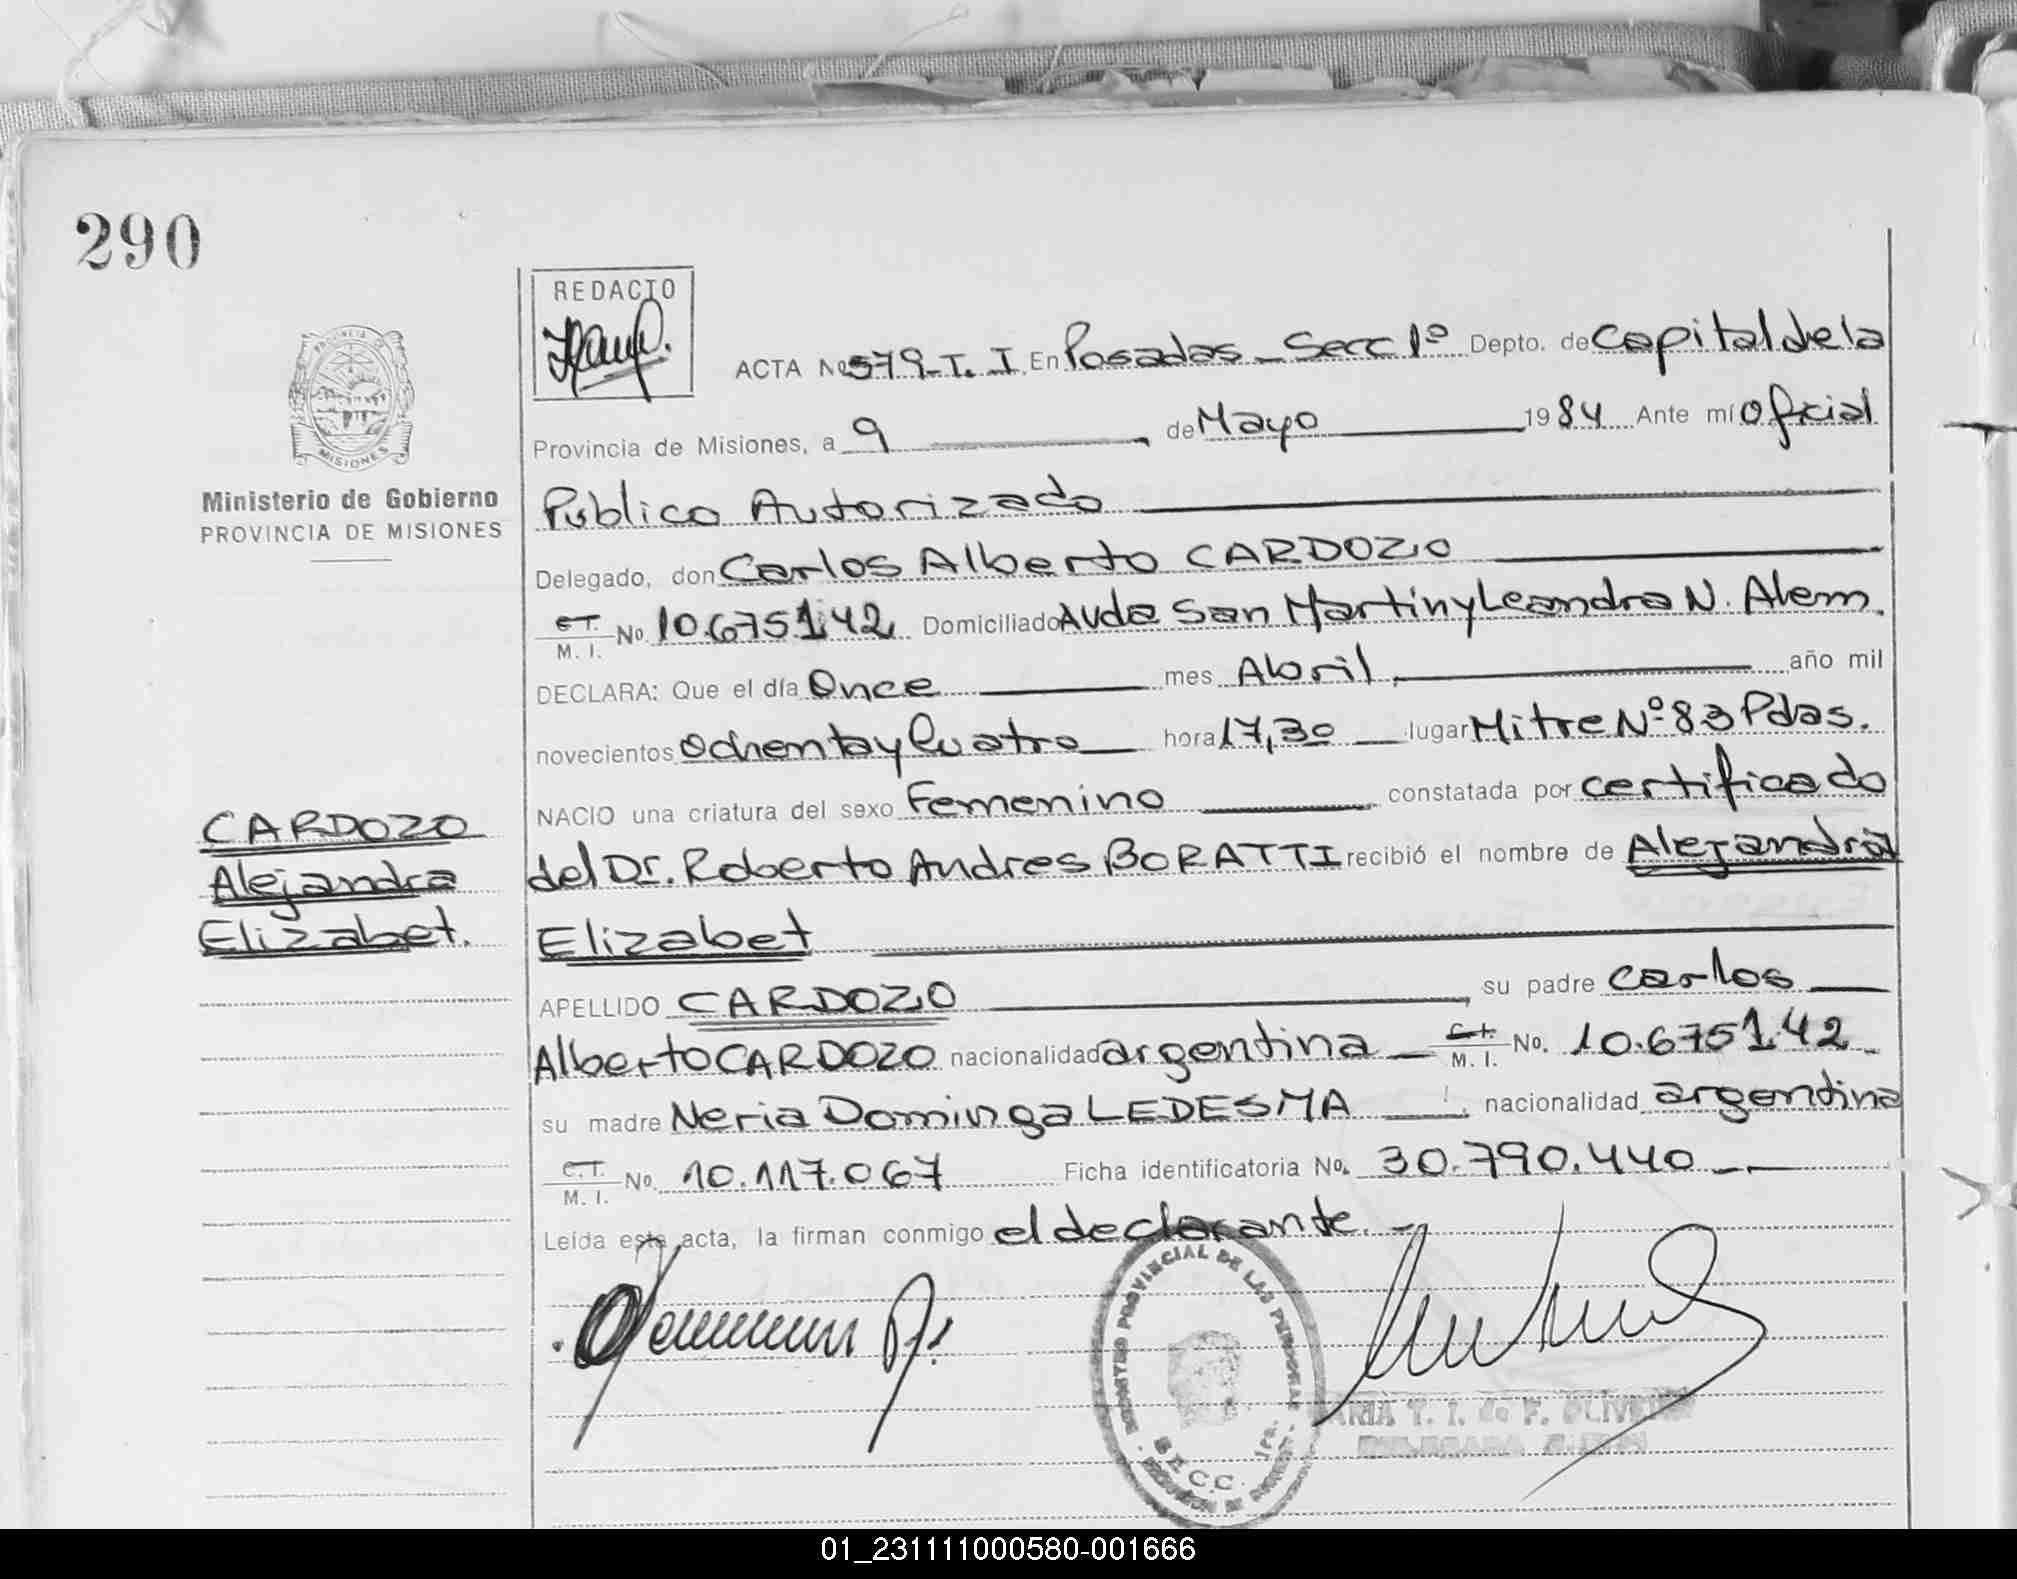 290
REDACTO
ACTA No 579-T. I En Posadas - Secc 1º Depto. de Capital de la
Provincia de Misiones, a 9 de Mayo 1984 Ante mí Oficial
Ministerio de Gobierno
PROVINCIA DE MISIONES
Público Autorizado
Delegado, don Carlos Alberto CARDOZO
C.I. M. I. No 10.675142 Domiciliado Avda San Martin y Leandro N. Alem.
DECLARA: Que el día Once mes Abril, año mil
novecientos Ochenta y Cuatro hora 17,30 lugar Mitre Nº 83 Pdas.
NACIO una criatura del sexo Femenino constatada por certificado
CARDOZO
Alejandra
Elizabet.
del Dr. Roberto Andres BORATTI recibió el nombre de Alejandra
Elizabet
APELLIDO CARDOZO, su padre Carlos
Alberto CARDOZO nacionalidad argentina C.I. M. I. No. 10.675142
su madre Neria Dominga LEDESMA, nacionalidad argentina
C.I. M. I. No. 10.117.067 Ficha identificatoria No. 30.790.440
Leída esta acta, la firman conmigo el declarante.
REGISTRO PROVINCIAL DE LAS PERSONAS
SECC. 1ra.
MARIA T. I. de F. OLIVEIRA
01_231111000580-001666